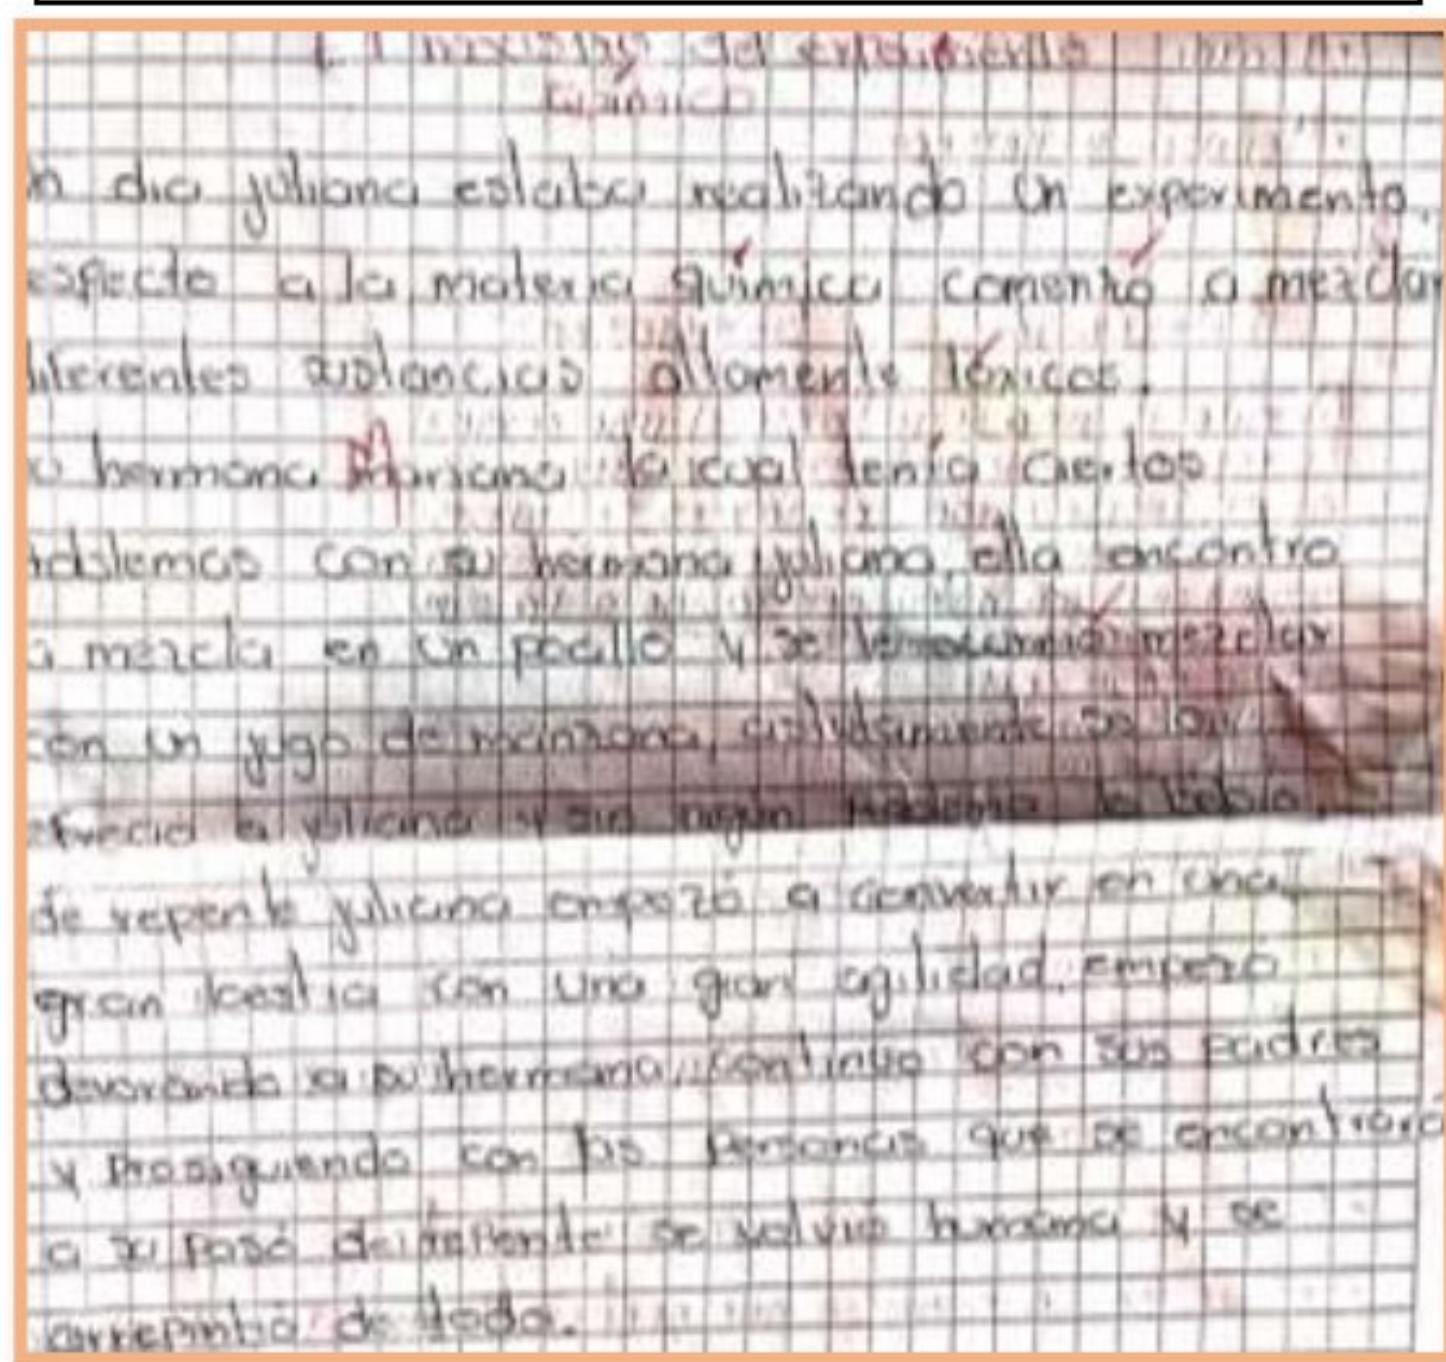 del experimento
químico
dia juliana estaba realizando un experimento,
especto a la materia química comentó a mezclar
diferentes sustancias altamente tóxicas.
hermana Mariana la cual tenía ciertos
problemas con su hermana juliana, ella encontro
a mezcla en un pocillo y se le ocurrió mezclar
con un jugo de manzana, astutamente se lo
ofrecio a juliana y sin ningún problema lo bebio,
de repente juliana empezó a convertir en una
gran bestia con una gran agilidad, empezo
devorando a su hermana, continuo con sus padres
y prosiguiendo con las personas que se encontrara
a su paso de repente se volvio humana y se
arrepintio de todo.